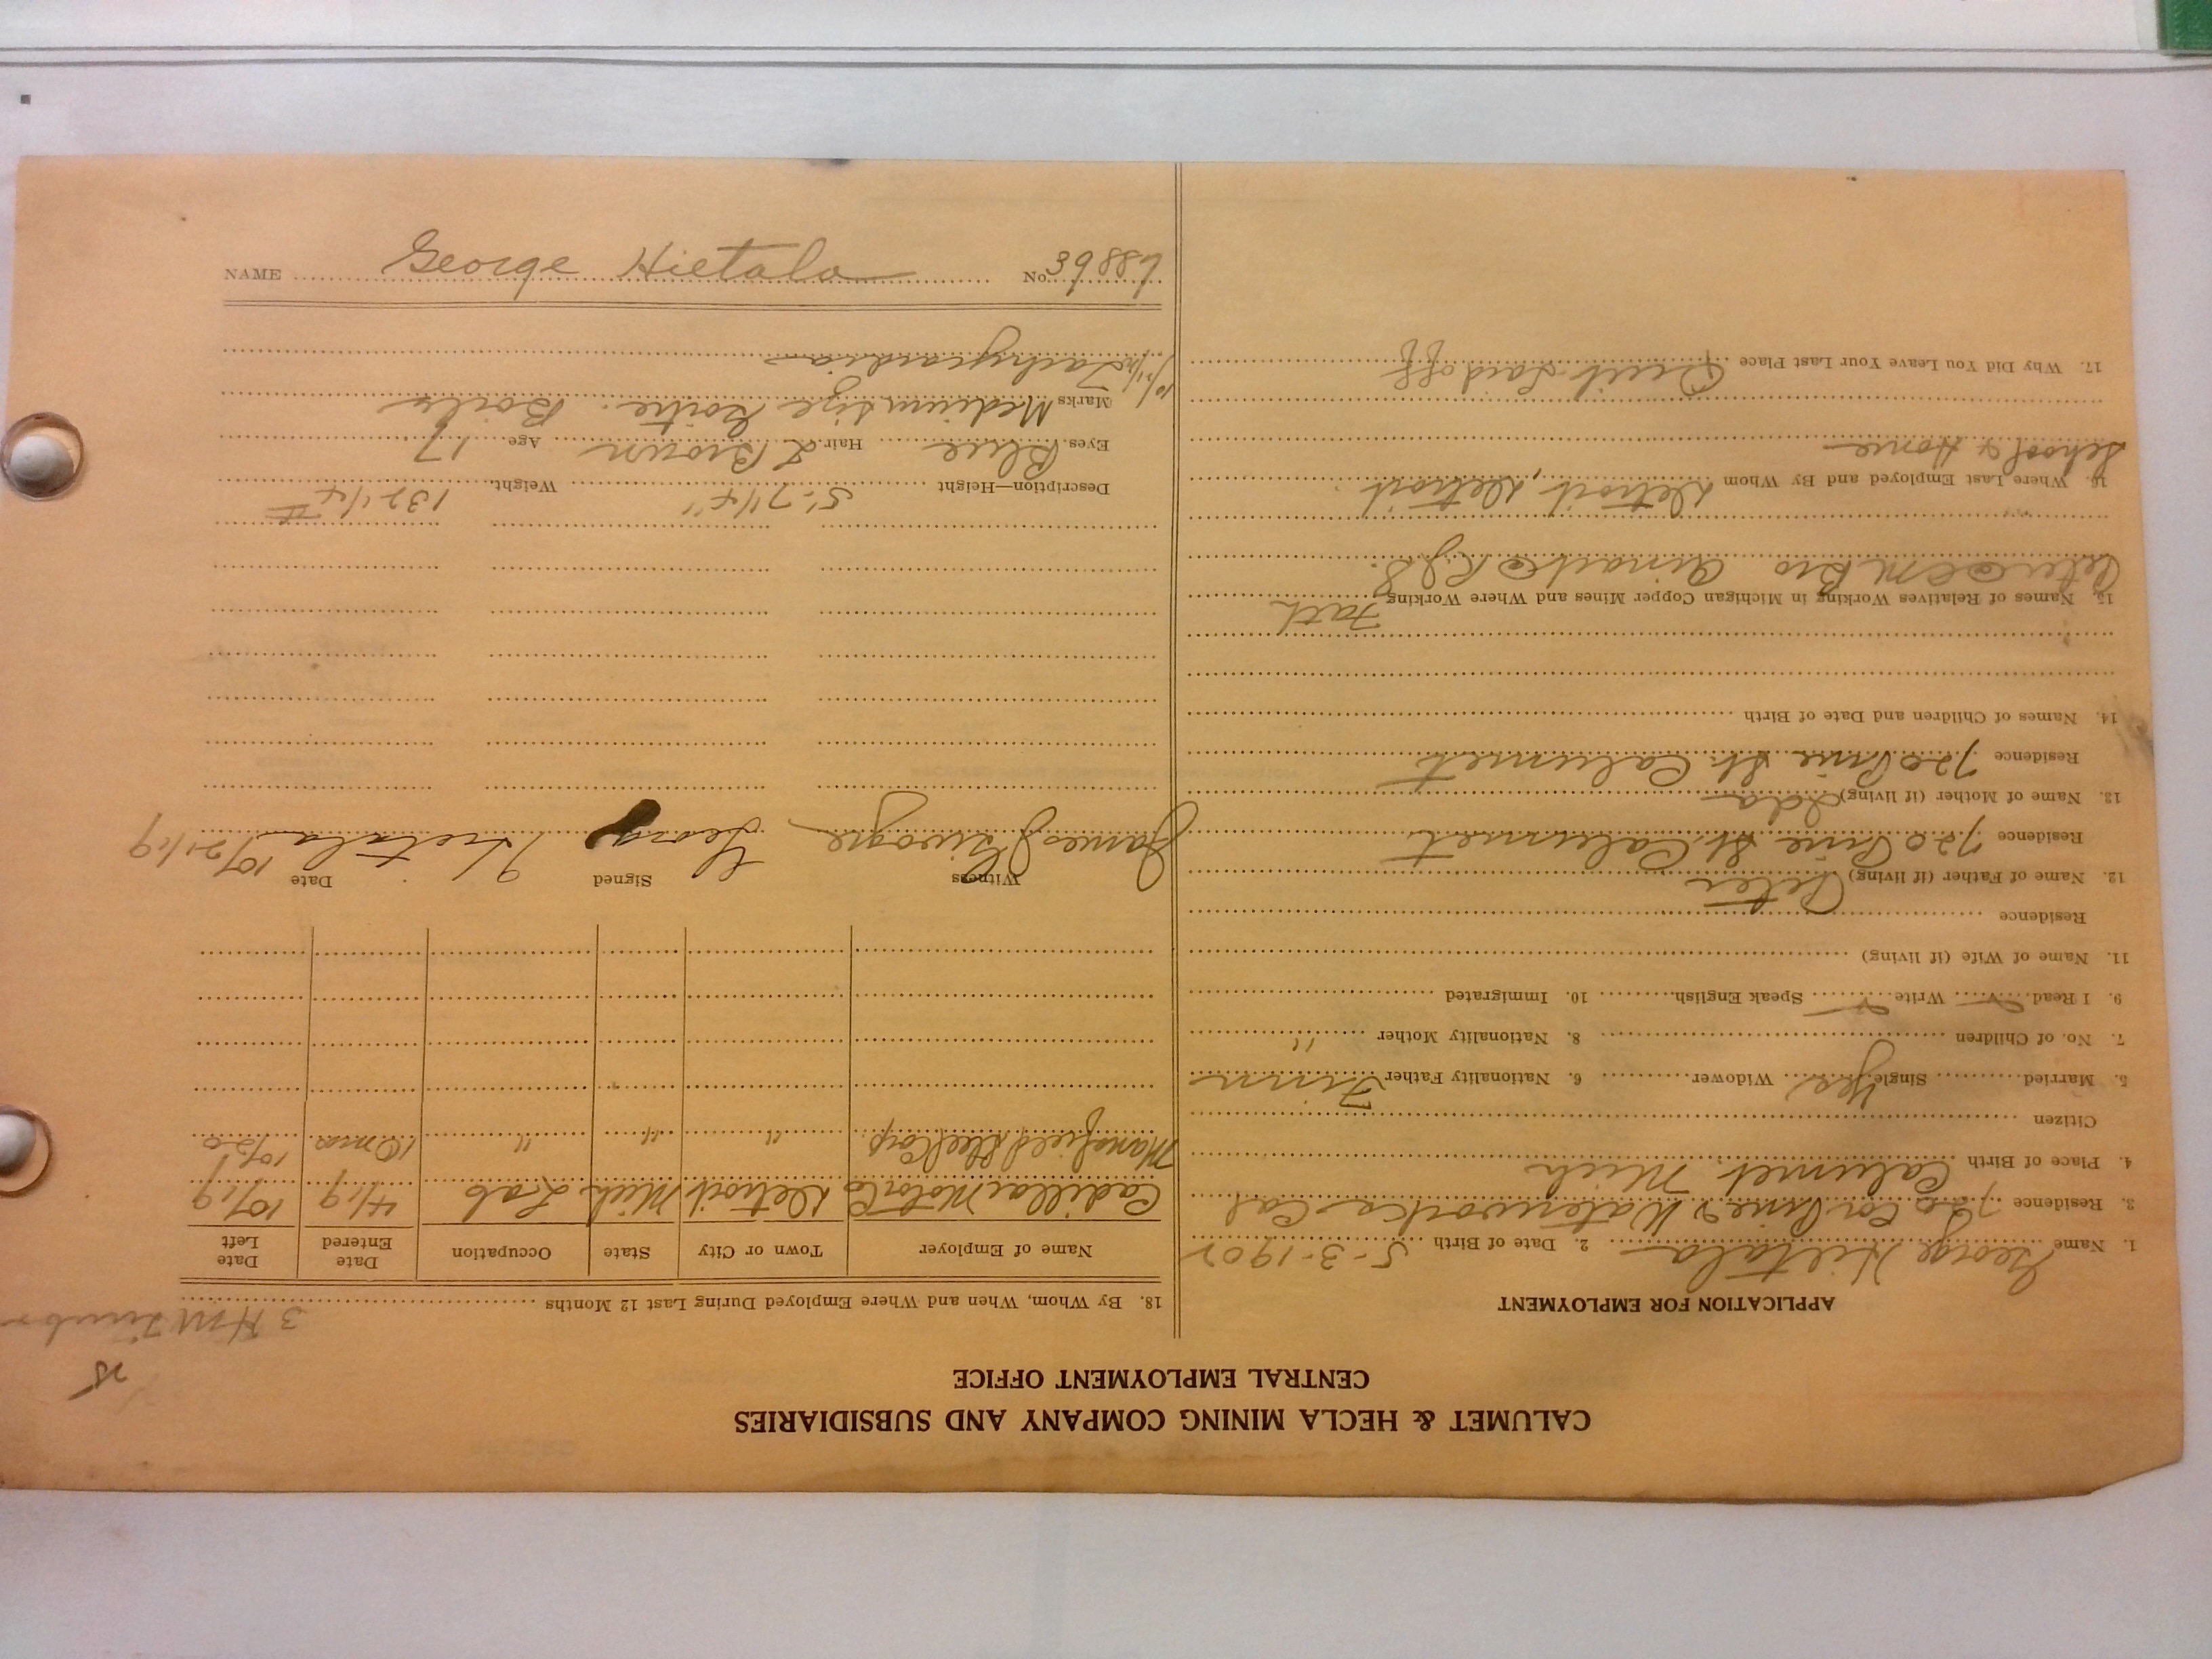 CALUMET & HECLA MINING COMPANY AND SUBSIDIARIES
CENTRAL EMPLOYMENT OFFICE
APPLICATION FOR EMPLOYMENT
1. Name George Hietala 2. Date of Birth 5-3-1902
3. Residence 720 Cor Pine & Waterworks Cal
4. Place of Birth Calumet Mich
Citizen
5. Married Single Yes Widower 6. Nationality Father Finn
7. No. of Children 8. Nationality Mother "
9. I Read ✓ Write ✓ Speak English 10. Immigrated
11. Name of Wife (if living)
Residence
12. Name of Father (if living) Peter
Residence 720 Pine St. Calumet
13. Name of Mother (if living) Ida
Residence 720 Pine St. Calumet
14. Names of Children and Date of Birth
15. Names of Relatives Working in Michigan Copper Mines and Where Working Fath
Peter C&M Bro.
16. Where Last Employed and By Whom Detroit, Detroit
School & Home
17. Why Did You Leave Your Last Place Quit Laid off
25
3 HM Timbr
18. By Whom, When and Where Employed During Last 12 Months
Name of Employer Town or City State Occupation Date Entered Date Left
Cadillac Motor Co Detroit Mich Lab 4/19 10/19
Mansfield Steel Corp " " " 10 mos 10/20
Witness Signed Date
James J Vivogne George Hietala 10/21/19
Description—Height 5'-7 1/4" Weight 132 1/4 #
Eyes Blue Hair L Brown Age 17
Marks Medium size Goitre. Boils
Tachycardia
NAME George Hietala No. 39887